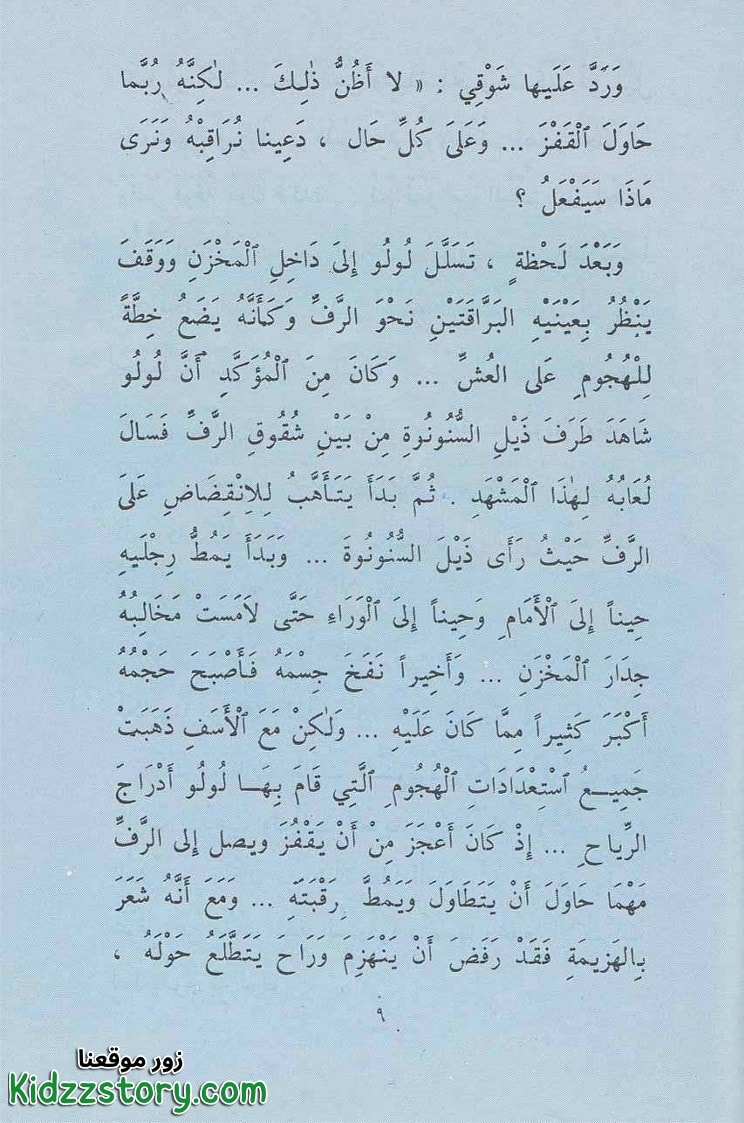 وَرَدَّ عَلَيها شَوْقِي : « لا أَظُنُّ ذٰلِكَ ... لٰكِنَّهُ رُبَّما
حَاوَلَ ٱلْقَفْزَ ... وَعَلىَ كُلِّ حَال ، دَعِينا نُرَاقِبْهُ وَنَرَى
مَاذَا سَيَفْعَلُ ؟
وَبَعْدَ لَحْظةٍ ، تَسَلَّلَ لُولُو إلىَ دَاخِلِ ٱلْمَخْزَنِ وَوَقَفَ
يَنْظُرُ بِعَيْنَيْهِ البَرَّاقَتَيْنِ نَحْوَ الرَّفِّ وَكَأَنَّهُ يَضَعُ خِطَّةً
لِلْهُجُومِ عَلى العُشِّ ... وَكَانَ مِنَ ٱلْمُؤَكَّدِ أَنَّ لُولُو
شَاهَدَ طَرَفَ ذَيْلِ السُّنُونُوةِ مِنْ بَيْنِ شُقُوقِ الرَّفِّ فَسَالَ
لُعَابُهُ لِهٰذَا ٱلْمَشْهَدِ . ثُمَّ بَدَأَ يَتَأَهَّبُ لِلاِنْقِضَاضِ عَلىَ
الرَّفِّ حَيْثُ رَأَى ذَيْلَ السُّنُونُوةَ ... وَبَدَأَ يَمُطُّ رِجْلَيهِ
حِيناً إلىَ ٱلْأَمَامِ وَحِيناً إلىَ ٱلْوَرَاءِ حَتَّى لاَمَسَتْ مَخَالِبُهُ
جِدَارَ ٱلْمَخْزَنِ ... وَأَخِيراً نَفَخَ جِسْمَهُ فَأَصْبَحَ حَجْمُهُ
أَكْبَرَ كَثِيراً مِمَّا كَانَ عَلَيْهِ ... وَلٰكِنْ مَعَ ٱلْأَسَفِ ذَهَبَتْ
جَمِيعُ ٱسْتِعْدَادَاتِ ٱلْهُجُومِ ٱلَّتِي قَامَ بِهَا لُولُو أَدْرَاجَ
الرِّياحِ ... إذْ كَانَ أَعْجَزَ مِنْ أَنْ يَقْفُزَ ويصل إلى الرَّفِّ
مَهْمَا حَاوَلَ أَنْ يَتَطَاوَلَ وَيَمُطَّ رَقْبَتَهِ ... وَمَعَ أَنَّهُ شَعَرَ
بِالهَزِيمَةِ فَقَدْ رَفَضَ أَنْ يَنْهَزِمَ وَرَاحَ يَتَطَّلَعُ حَوْلَهُ ،
٩
زور موقعنا
Kidzzstory.com